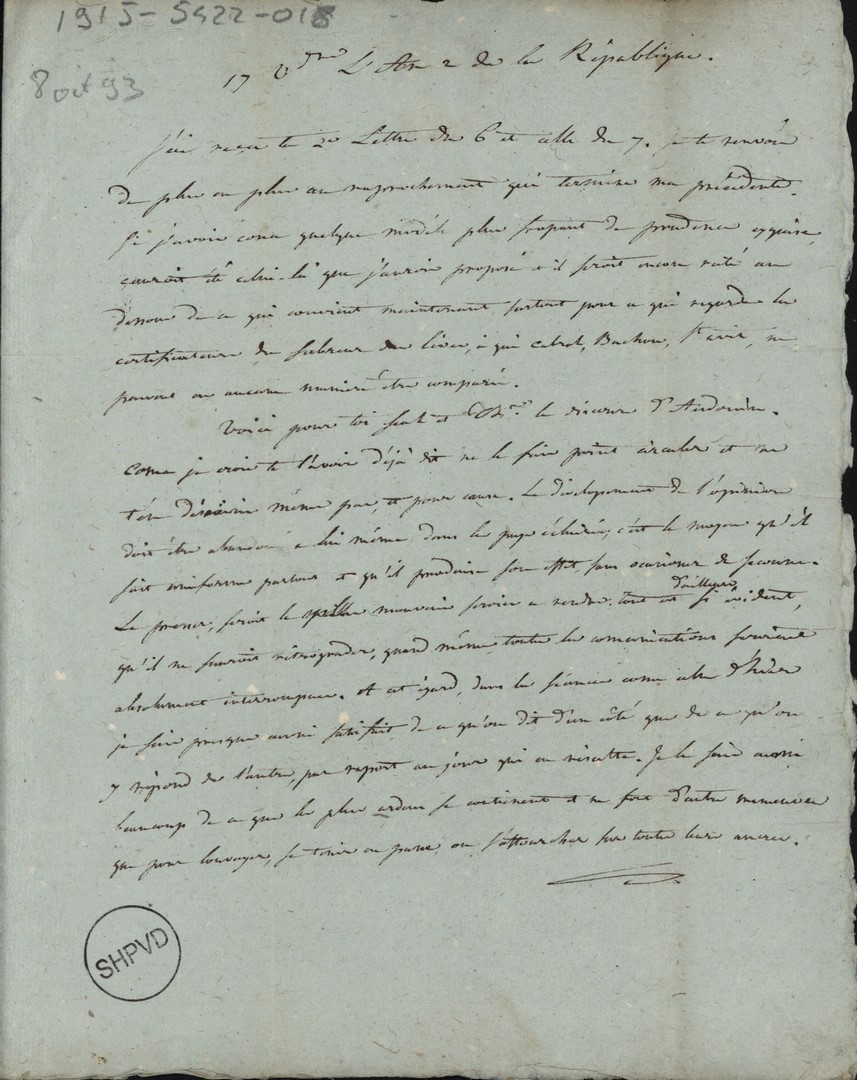 1915-5422-018
8 oct 93
17 v.dre L'An 2 de la République.
J'ai reçu ta 2e Lettre du 6 et celle du 7. je te renvoie
de plus en plus au raprochement qui termine ma précédente.
Si j'avois conu quelque modèle plus frapant de prudence exquise,
c'auroit été celui-là que j'aurois proposé et il seroit encore resté au
dessous de ce qui convient maintenant, surtout pour ce qui regarde les
certificateurs du sabreur de livres, à qui cabrol, Bachon,
peuvent en aucune manière être comparés.
Voici pour toi seul et le discours d'Audouin.
Come je crois te l'avoir déjà dit ne le fais point circuler et ne
t'en même pas, et pour cause. Le dévelopement de l'opinion
doit être abandoné a lui même dans les pays éclairés; c'est le moyen qu'il
soit uniforme partout et qu'il produise son effet sans ocasioner de secousse.
Le presser, seroit le plus mauvais service a rendre. tout est d'ailleurs si évident,
qu'il ne sauroit rétrograder, quand même toutes les comunications seroient
absolument interrompues. A cet égard, dans les séances come celle d'hier
je suis presque aussi satisfait de ce qu'on dit d'un côté que de ce qu'on
y répond de l'autre, par raport au jour qui en résulte. Je le suis aussi
beaucoup de ce que les plus ardens se contienent et ne font d'autre manœuvre
que pour louvoyer, se tenir en pane ou s'affourcher sur toutes leurs ancres.
SHPVD